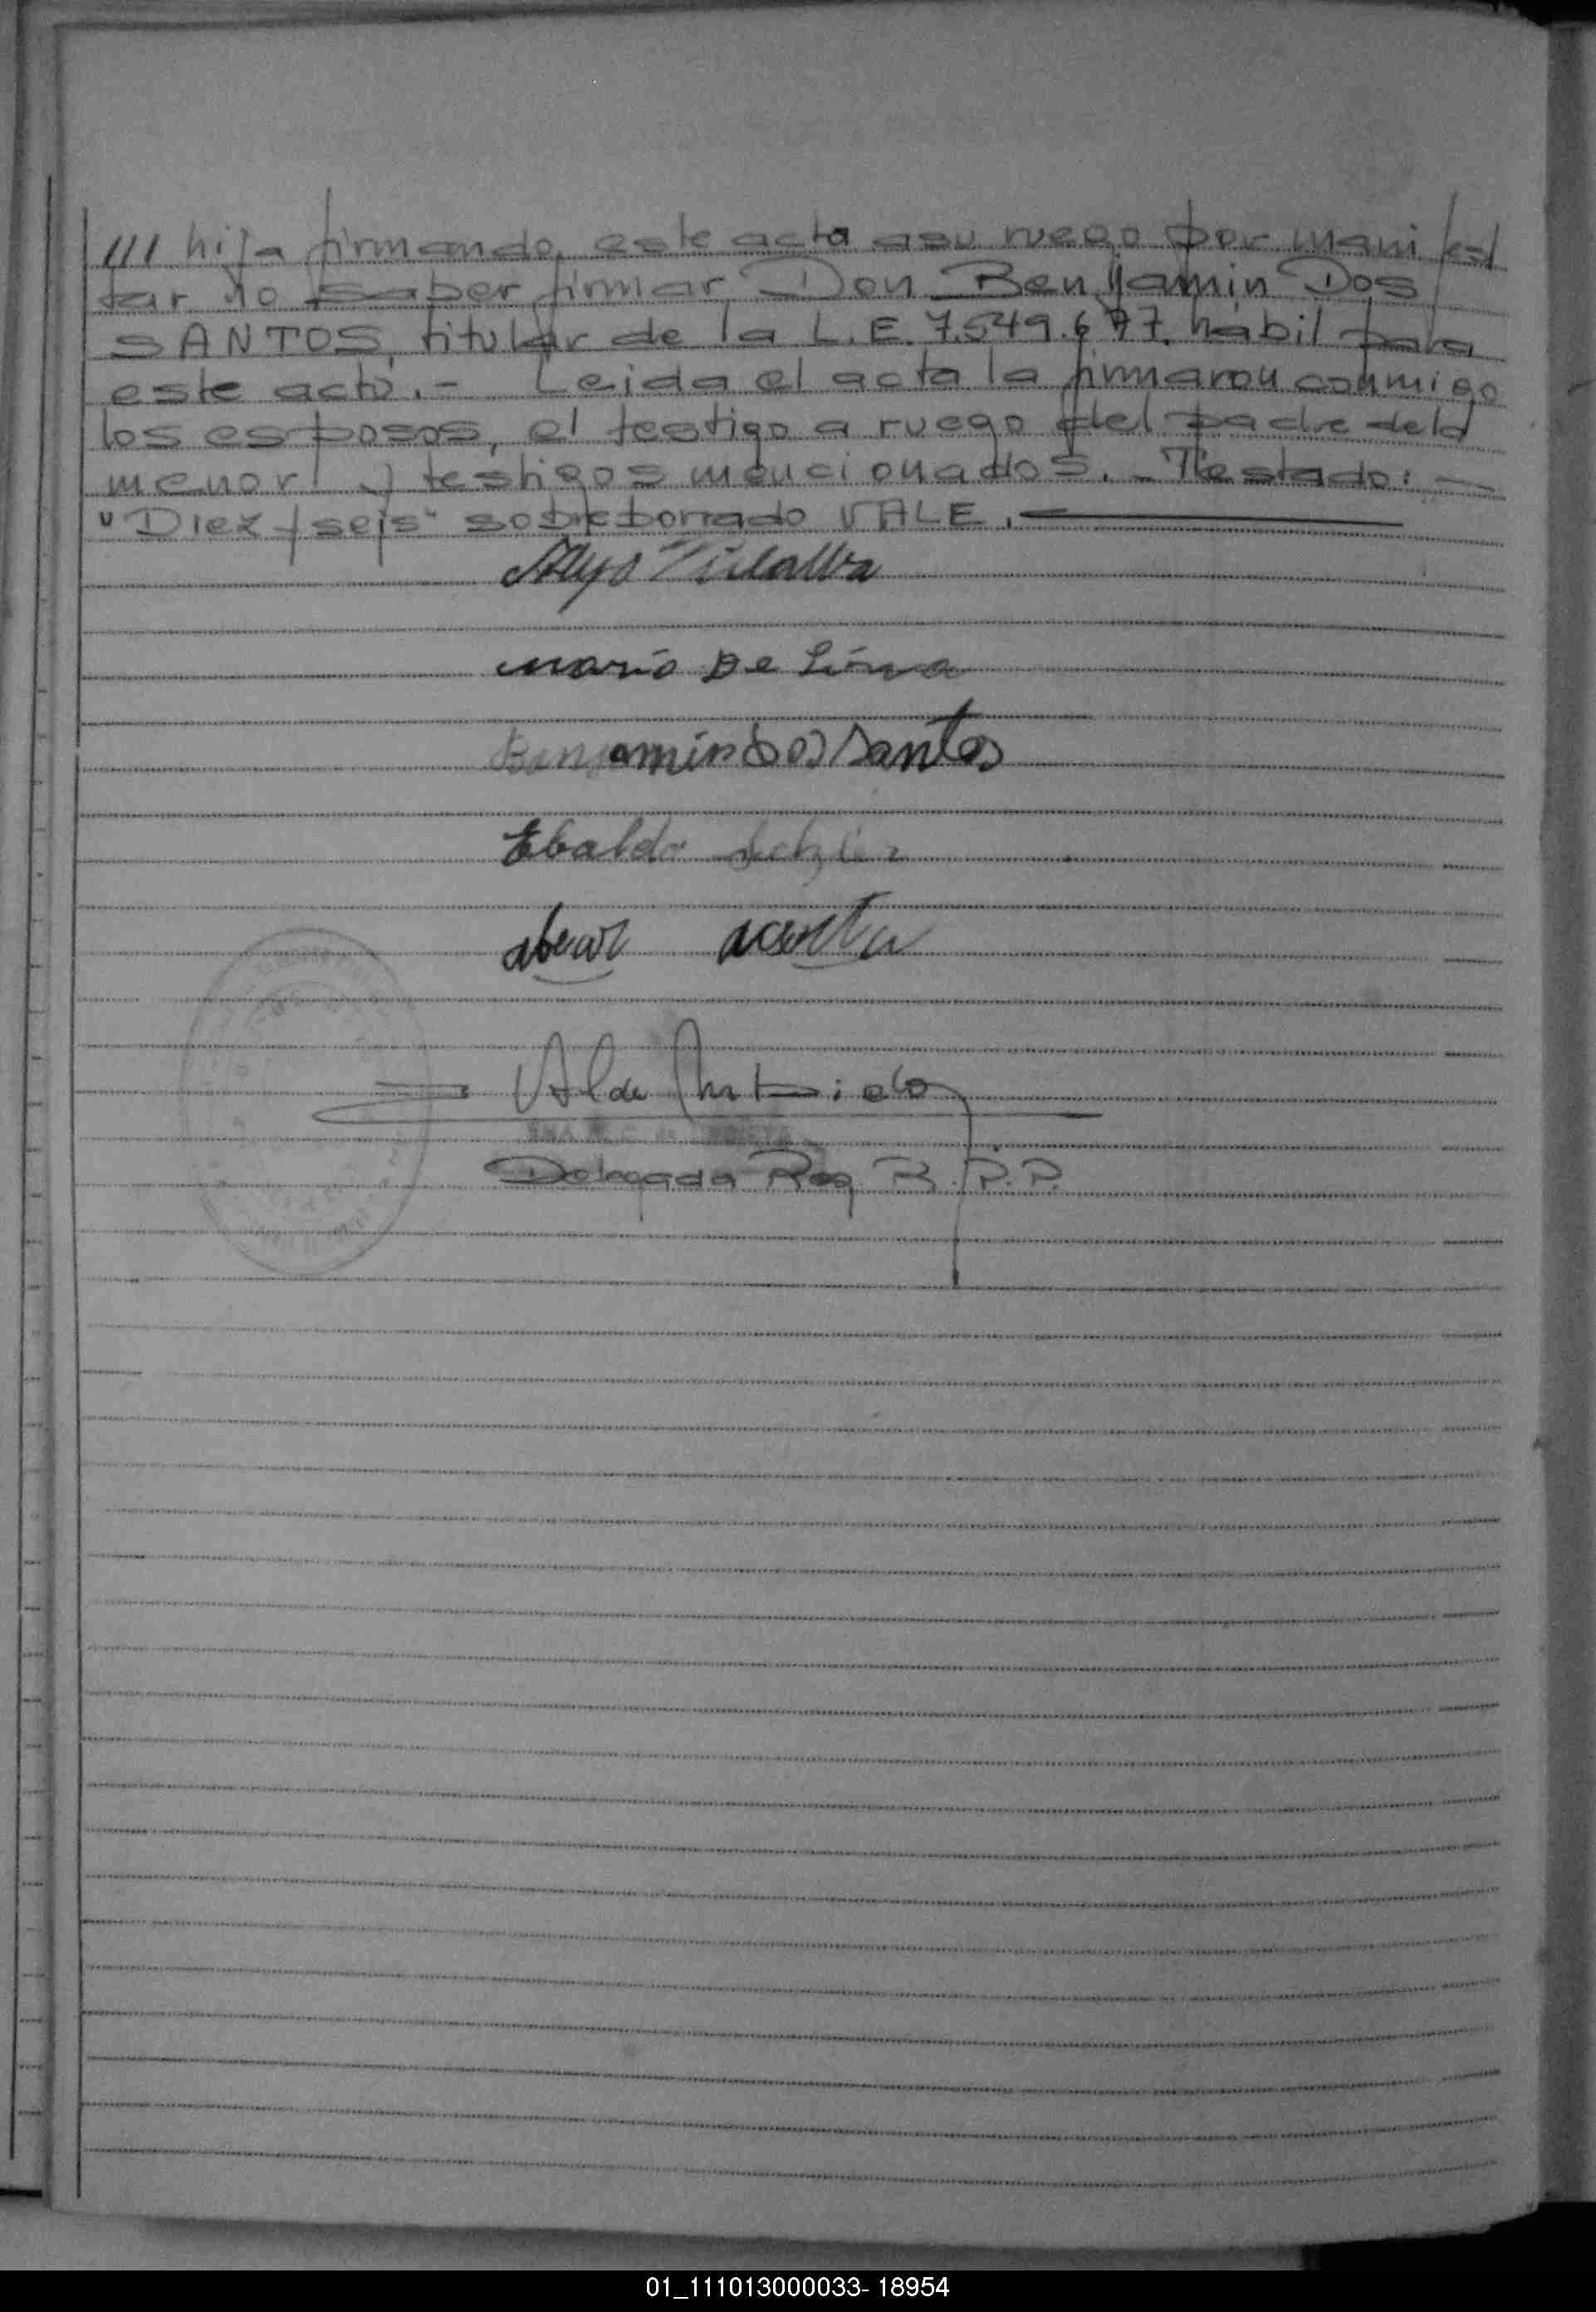 /// hija firmando, este acta a su ruego por manifes/
tar no saber firmar, Don Benjamin Dos
SANTOS, titular de la L.E. 7.549.677. hábil para
este acto.- Leida el acta la firmaron conmigo
los esposos, el testigo a ruego del padre de la
menor y testigos mencionados.- Testado: -
"Diez y seis" sobreborrado VALE.
Villalba
Mario De Lima
Benjamin dos Santos
Ebaldo
acosta
Delegada Reg R.P.P.
01_111013000033- 18954